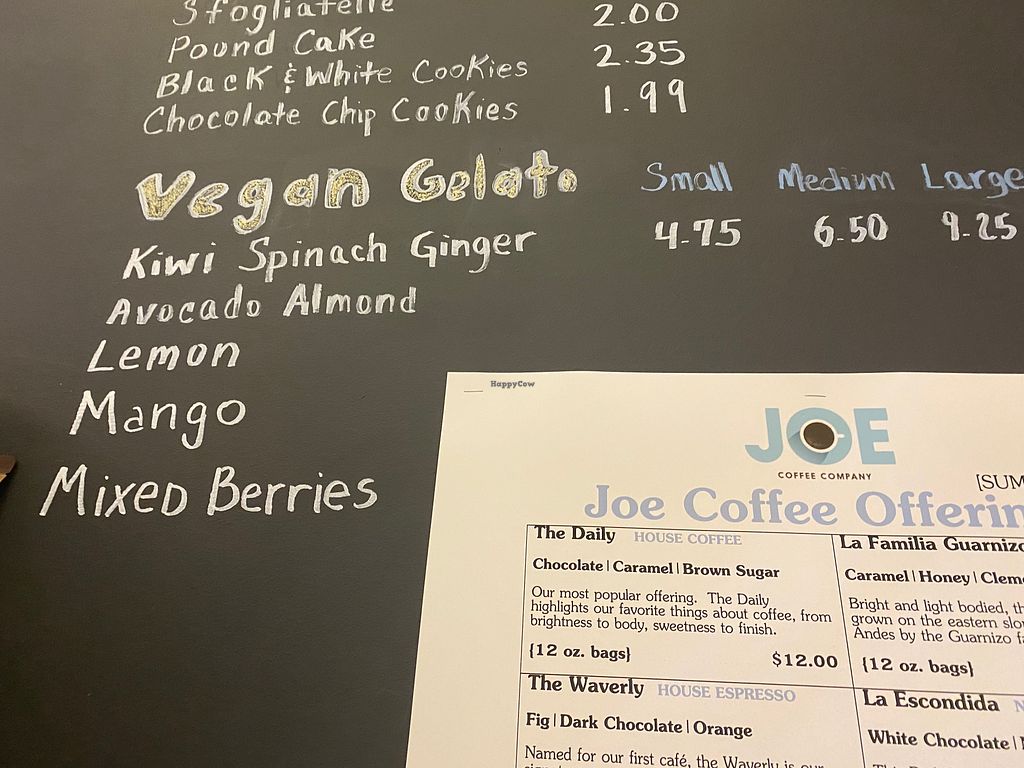 Sfogliatelle 2.00
Pound Cake 2.35
Black & White Cookies 1.99
Chocolate Chip Cookies
Vegan Gelato Small Medium Large
Kiwi Spinach Ginger 4.75 6.50 9.25
Avocado Almond
Lemon
Mango
Mixed Berries
HappyCow
JOE
COFFEE COMPANY
[SUM
Joe Coffee Offerin
The Daily HOUSE COFFEE
Chocolate | Caramel | Brown Sugar
Our most popular offering. The Daily
highlights our favorite things about coffee, from
brightness to body, sweetness to finish.
{12 oz. bags} $12.00
La Familia Guarnizo
Caramel | Honey | Cleme
Bright and light bodied, th
grown on the eastern slo
Andes by the Guarnizo fa
{12 oz. bags}
The Waverly HOUSE ESPRESSO
Fig | Dark Chocolate | Orange
Named for our first café, the Waverly is our
La Escondida
White Chocolate |